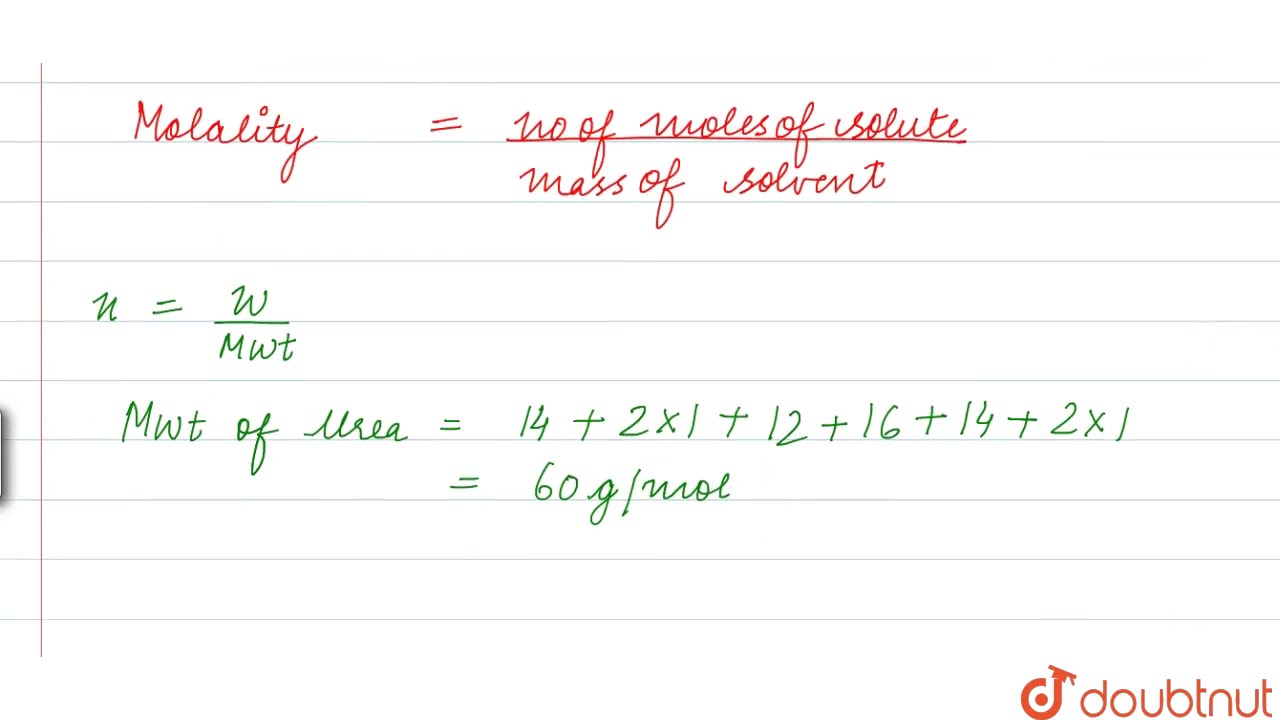 Molality = no of moles of solute
mass of solvent
n = w
Mwt
Mwt of Urea = 14 + 2×1 + 12 + 16 + 14 + 2×1
= 60 g/mol
doubtnut